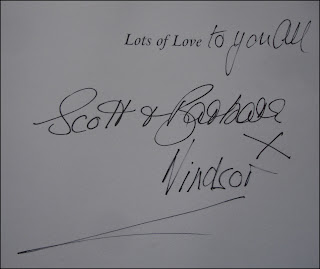 Lots of Love to you all
Scott & Barbara
X
Windsor